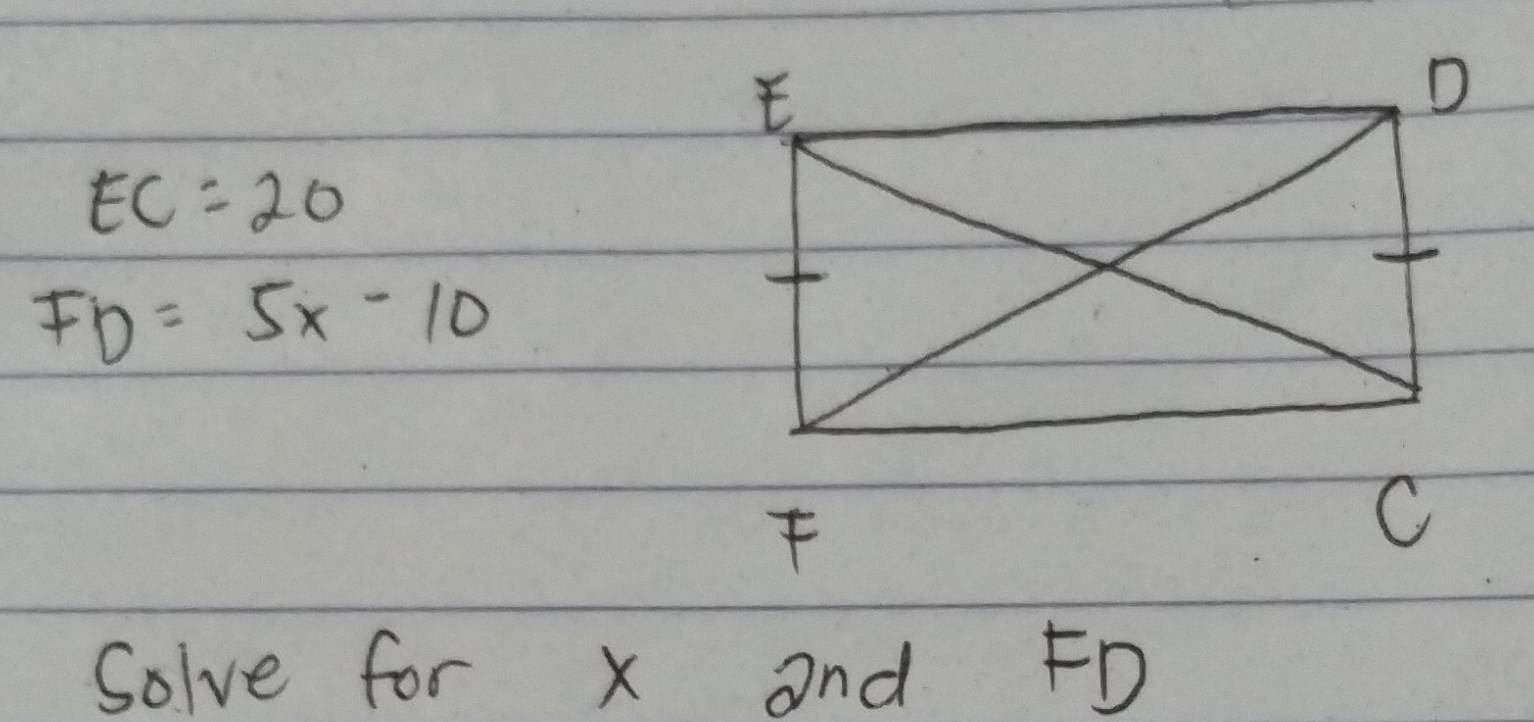 E
D
EC = 20
FD = 5x - 10
F
C
Solve for x and FD